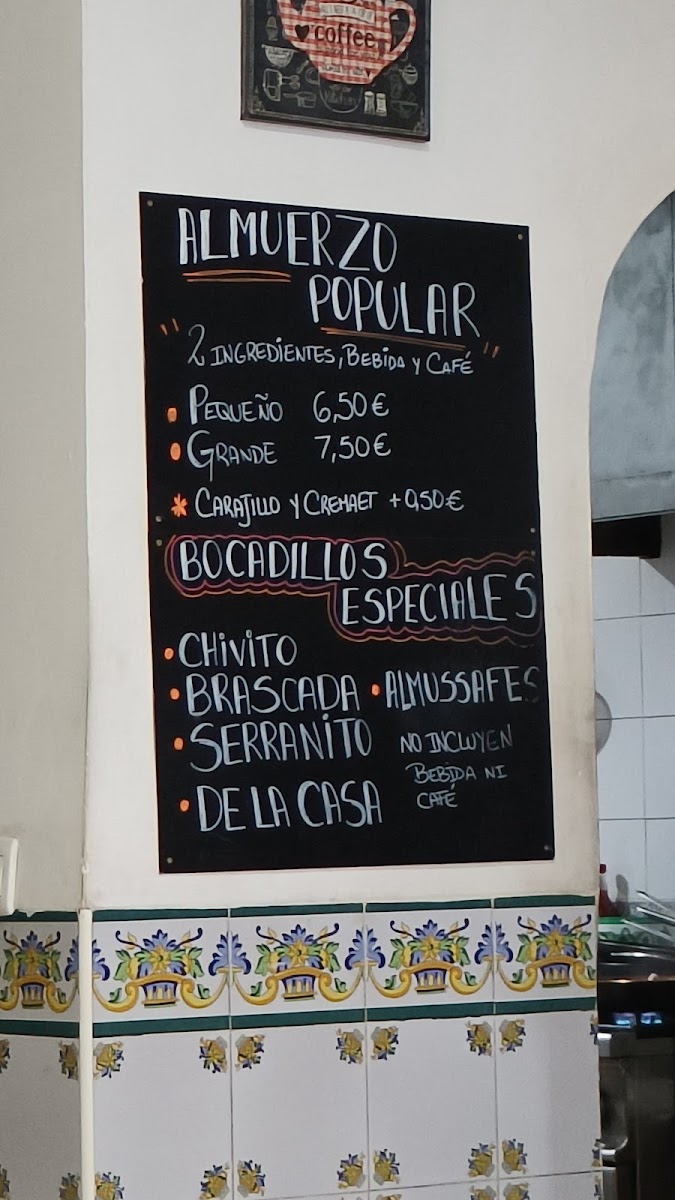 coffee
ALMUERZO
POPULAR
"2 INGREDIENTES, BEBIDA Y CAFÉ"
• PEQUEÑO 6,50€
• GRANDE 7,50€
* CARAJILLO Y CREMAET +0,50€
BOCADILLOS
ESPECIALES
• CHIVITO
• BRASCADA • ALMUSSAFES
• SERRANITO NO INCLUYEN
BEBIDA NI
• DE LA CASA CAFÉ